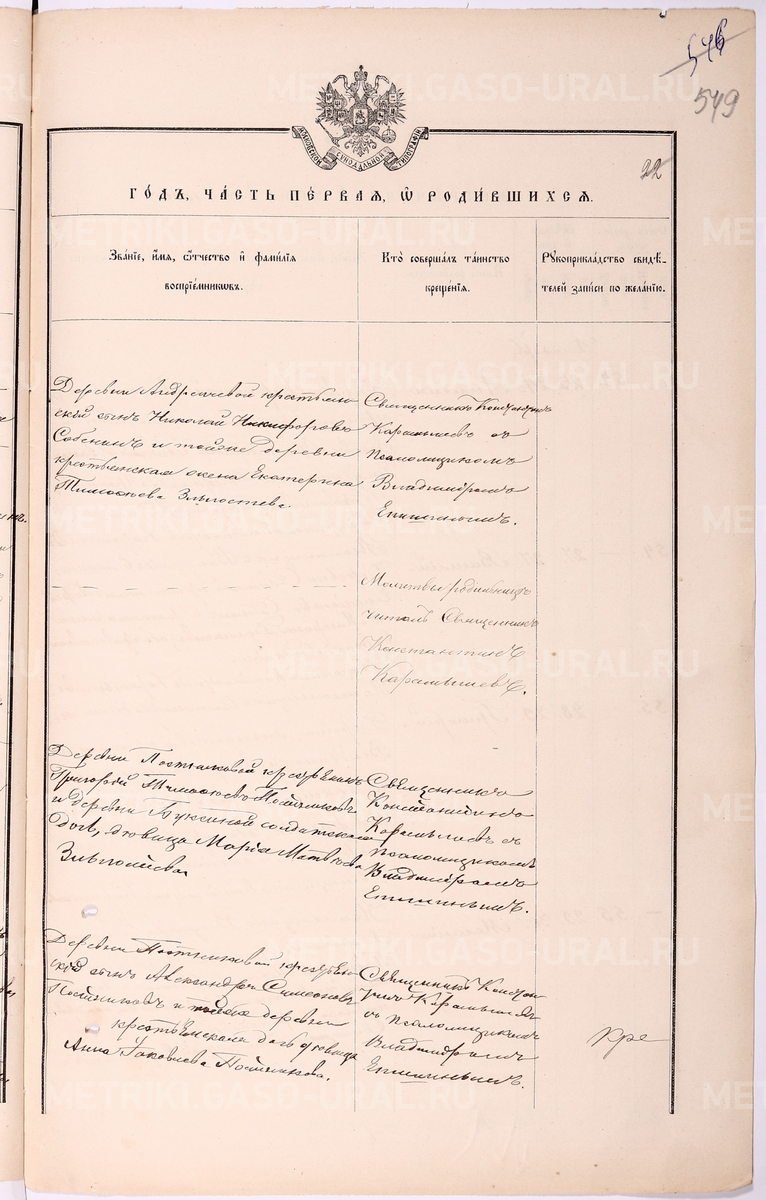 546
549
МОСКОВСКОЙ СѴНОДАЛЬНОЙ ТИПОГРАФІИ
22
ГО́ДЪ, ЧА́СТЬ ПЕ́РВАѦ, Ѡ҆ РОДИ́ВШИХСѦ.
Зва́нїе, и҆́мѧ, ѻ҆́тчество и҆ фами́лїѧ
воспрїе́мникѡвъ.
Кто̀ соверша́лъ та́инство
креще́нїѧ.
Рꙋкоприкла́дство свидѣ́-
телей за́писи по жела́нїю.
Деревни Андреичевой крестьян-
скій сынъ Николай Никифоровъ
Собенинъ и тойже деревни
крестьянская жена Екатерина
Тимофеева
Священникъ Константинъ
Карамышевъ съ
псаломщикомъ
Владиміромъ
Епишинымъ.
Молитвы родильницѣ
читалъ Священникъ
Константинъ
Карамышевъ.
Деревни Постниковой крестьянинъ
Григорій Тимофеевъ Постниковъ
и деревни солдатская
дочь, дѣвица Марія Матвѣева
Священникъ
Константинъ
Карамышевъ съ
псаломщикомъ
Владиміромъ
Епишинымъ.
Деревни Постниковой крестьян-
скій сынъ Александръ Симеоновъ
Постниковъ и тойже деревни
крестьянская дочь дѣвица
Анна Іаковлева Постникова.
Священникъ Констан-
тинъ Карамышевъ
съ псаломщикомъ
Владиміромъ
Епишинымъ.
METRIKI.GASO-URAL.RU